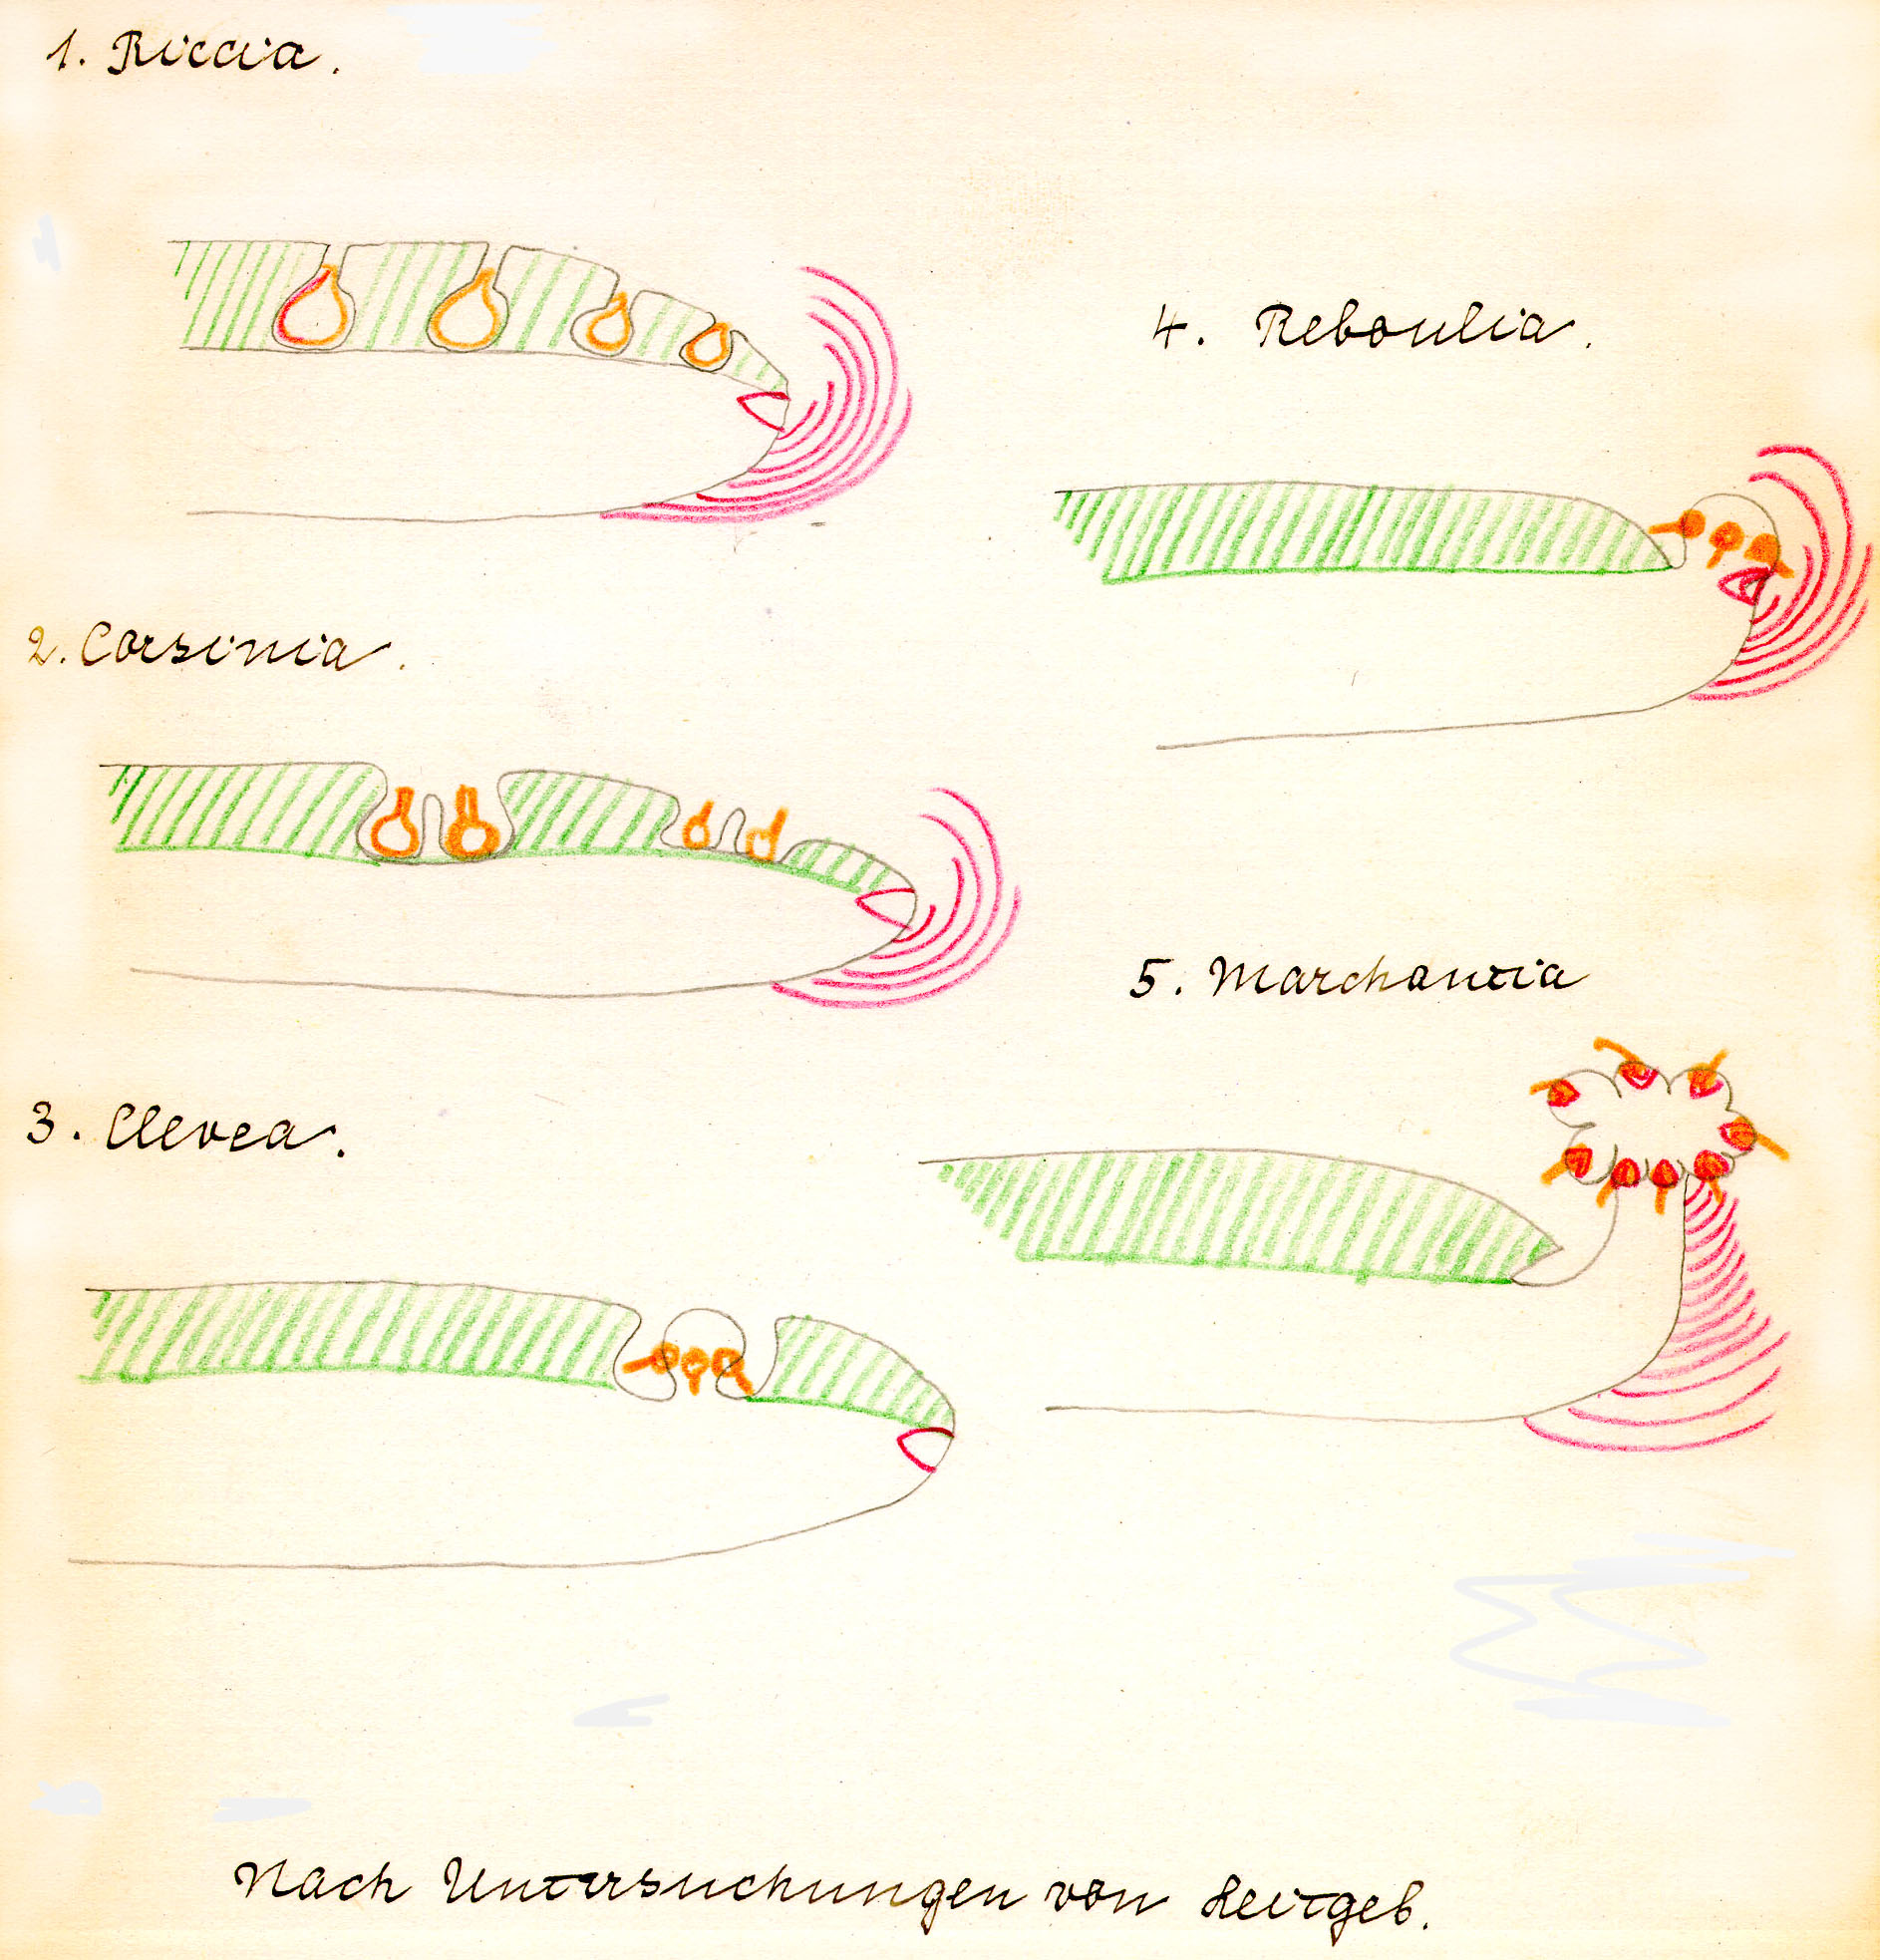 1. Riccia.
2. Corsinia.
3. Clevea.
4. Reboulia.
5. Marchantia
Nach Untersuchungen von Leitgeb.